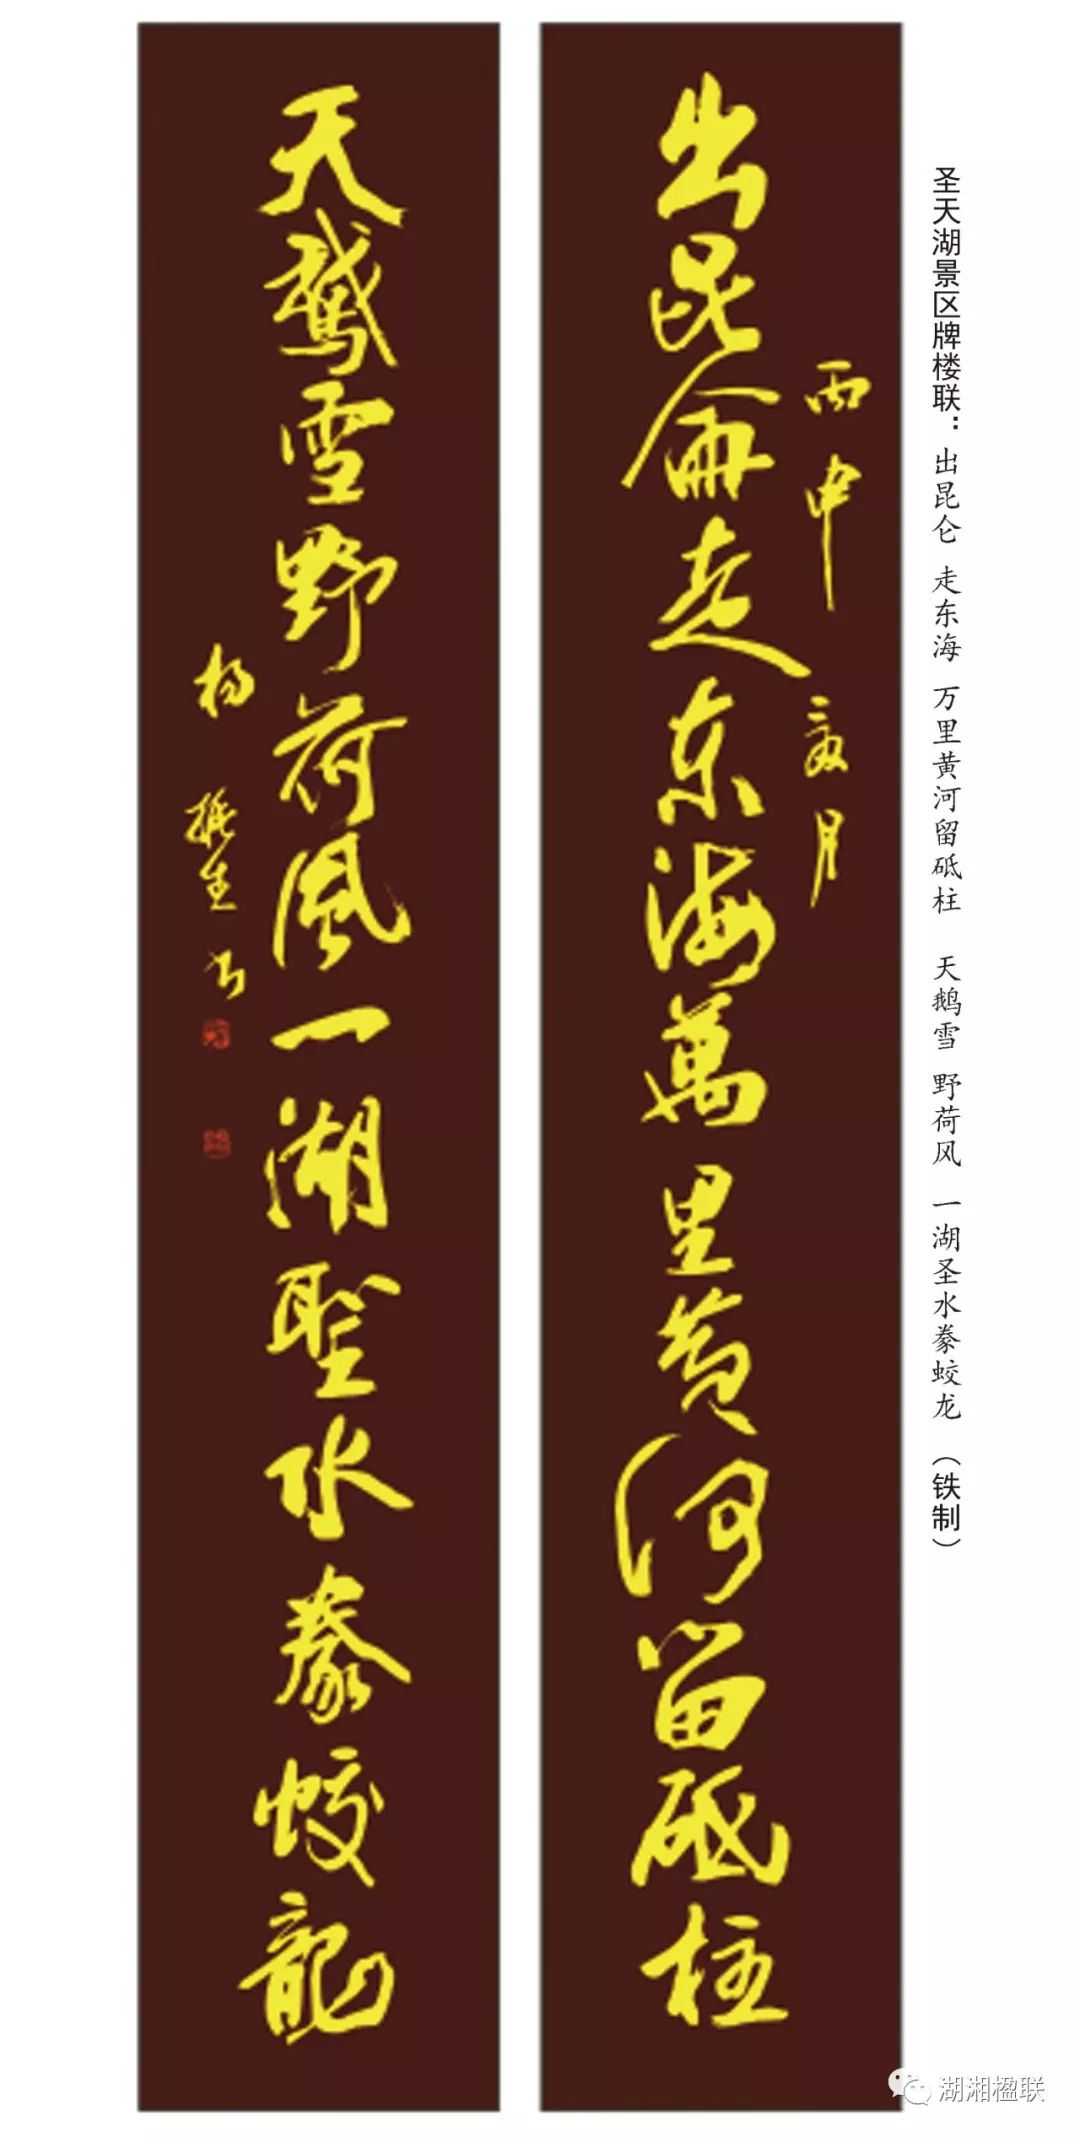 圣天湖景区牌楼联：出昆仑 走东海 万里黄河留砥柱 天鹅雪 野荷风 一湖圣水豢蛟龙 （铁制）
丙申
月
出崑崙走东海萬里黄河留砥柱
天鹅雪野荷風一湖聖水豢蛟龍
杨振生书
湖湘楹联